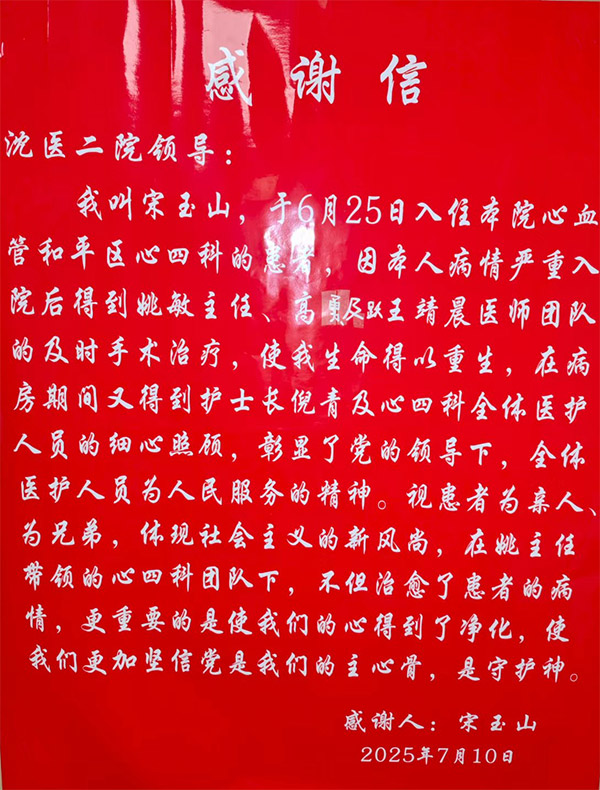 感谢信
沈医二院领导：
我叫宋玉山，于6月25日入住本院心血
管和平区心四科的患者，因本人病情严重入
院后得到姚敏主任、高 及 王靖晨医师团队
的及时手术治疗，使我生命得以重生，在病
房期间又得到护士长倪青及心四科全体医护
人员的细心照顾，彰显了党的领导下，全体
医护人员为人民服务的精神。视患者为亲人、
为兄弟，体现社会主义的新风尚，在姚主任
带领的心四科团队下，不但治愈了患者的病
情，更重要的是使我们的心得到了净化，使
我们更加坚信党是我们的主心骨，是守护神。
感谢人：宋玉山
2025年7月10日